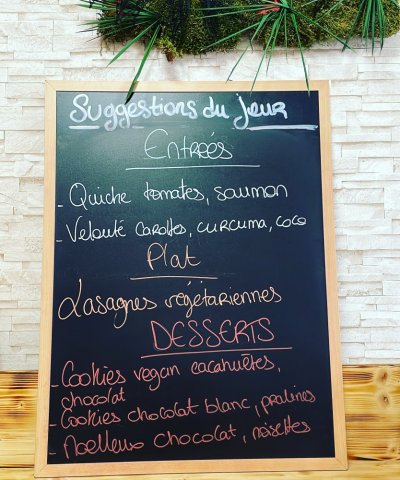 Suggestions du jour
Entrées
- Quiche tomates, saumon
- Velouté carottes, curcuma, coco
Plat
Lasagnes végétariennes
DESSERTS
- Cookies vegan cacahuètes,
chocolat
- Cookies chocolat blanc, pralines
- Moelleux chocolat, noisettes